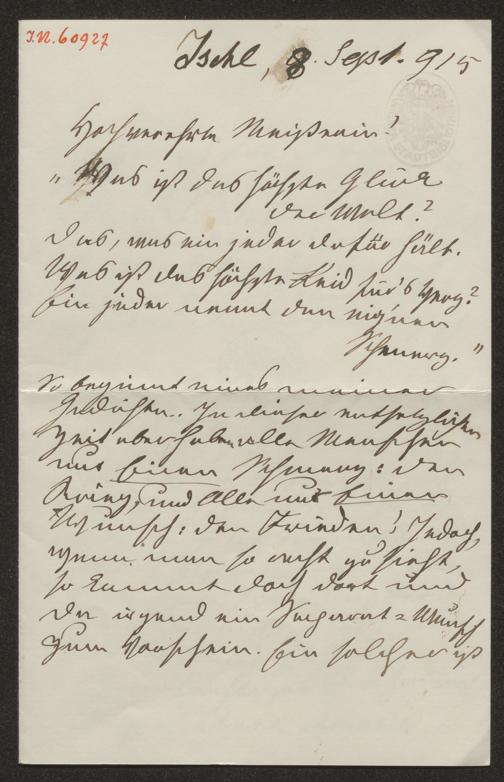 I.N. 60927
Ischl, 8. Sept. 915
Hochverehrte Meisterin!
„Was ist das höchste Glück
der Welt?
Das, was ein jeder dafür hält.
Was ist das höchste Leid für's Herz?
Ein jeder nennt den eig'nen
Schmerz."
So beginnt eines meiner
Gedichte. In dieser entsetzlichen
Zeit aber haben alle Menschen
nur Einen Schmerz: den
Krieg, und Alle nur Einen
Wunsch: den Frieden! Jedoch,
wenn man so recht zusieht,
so kommt doch dort und
da irgend ein Wunsch
zum Vorschein. Ein solcher ist